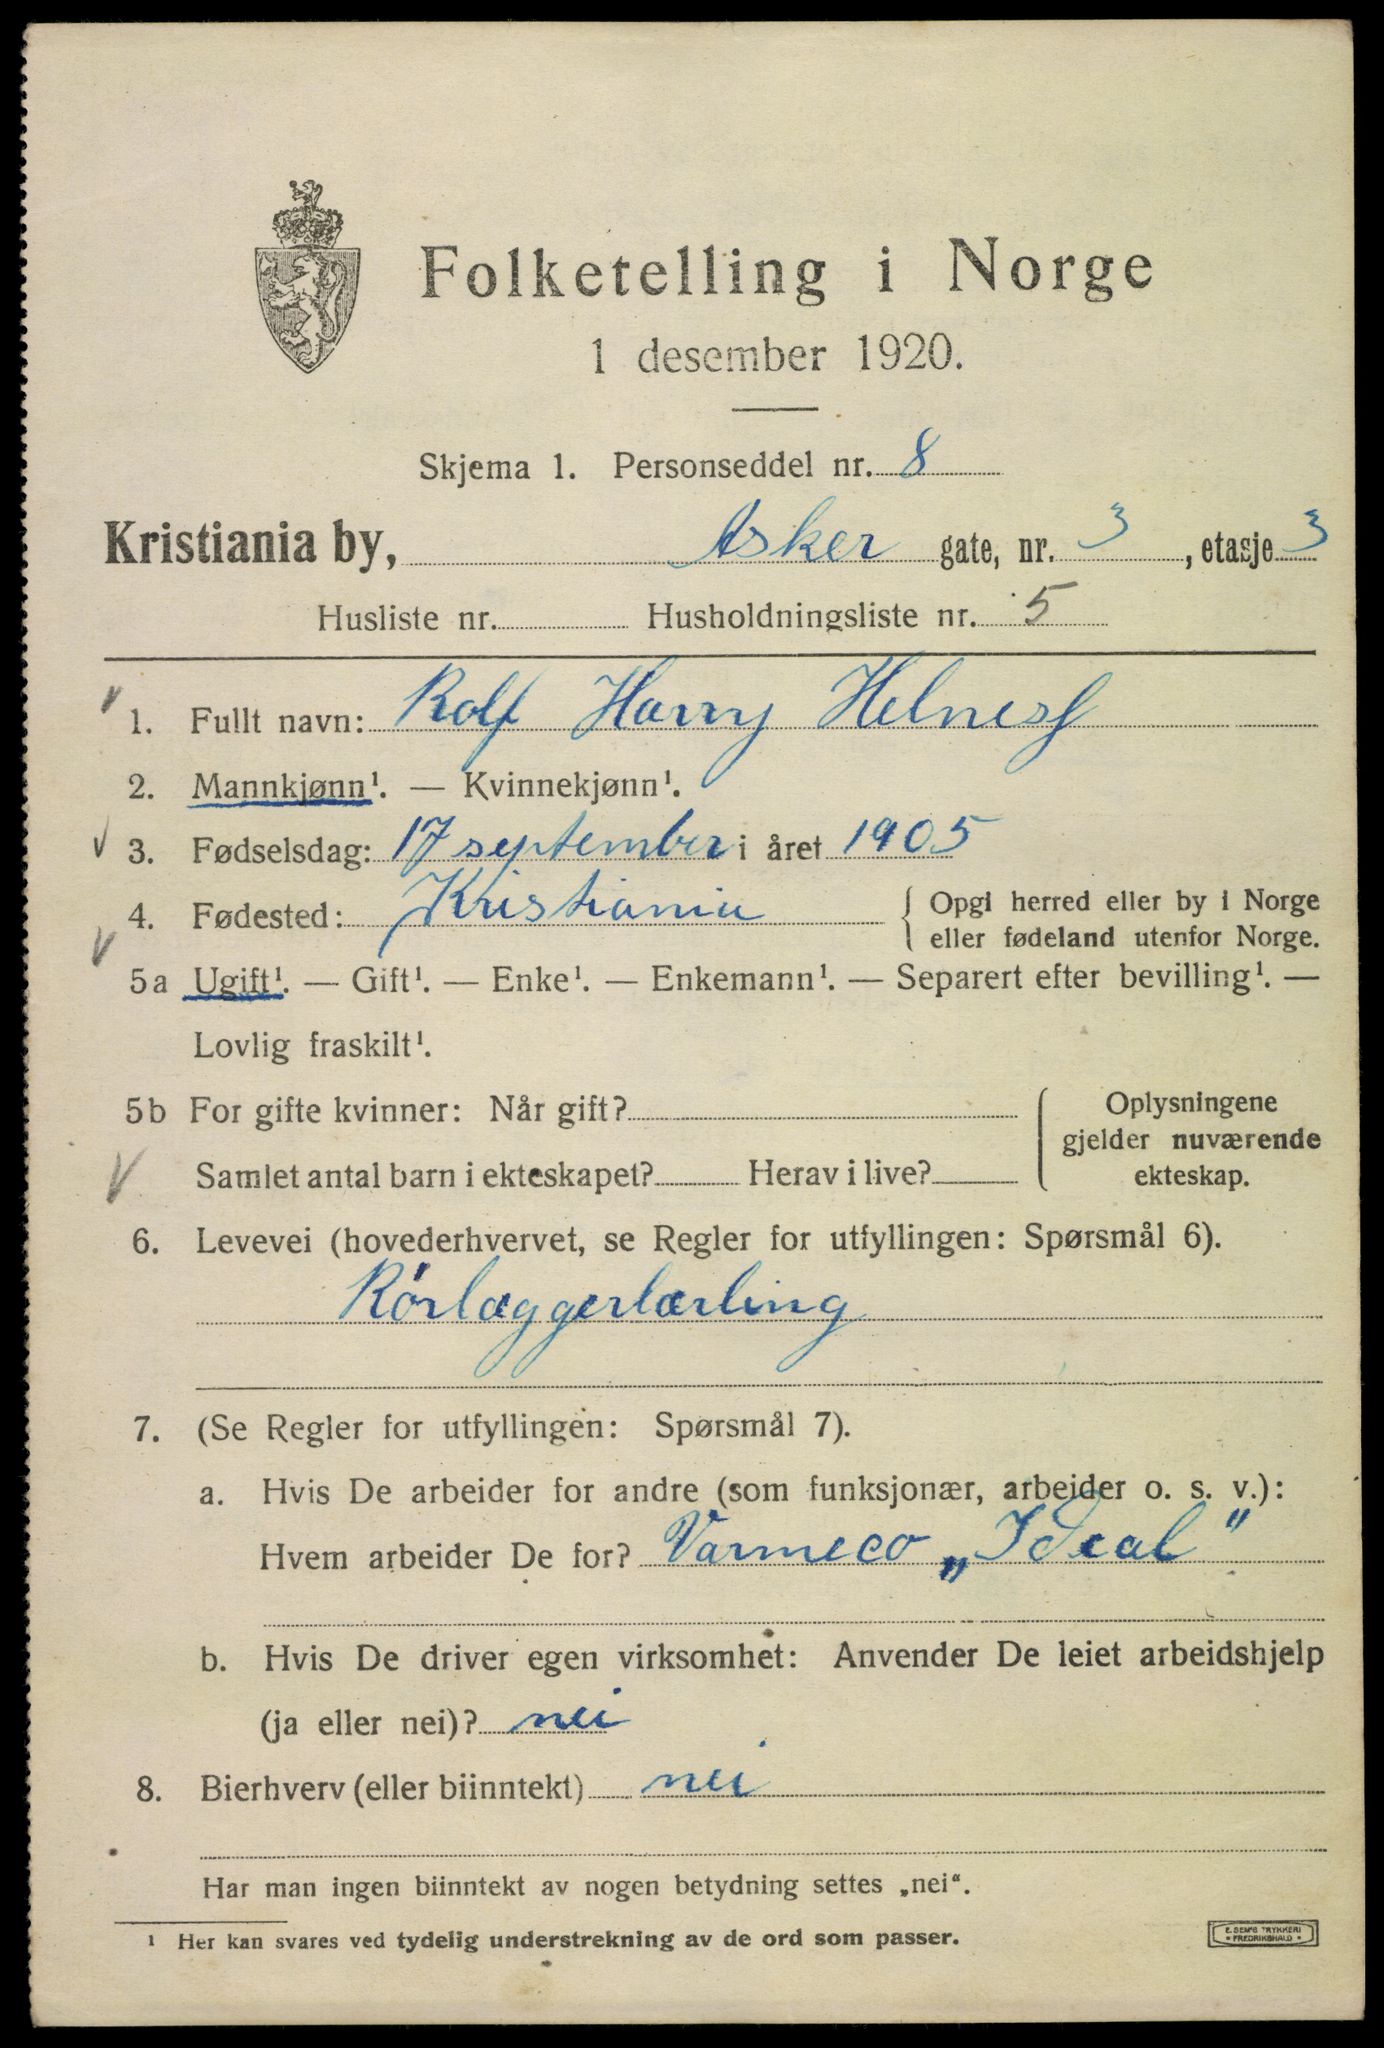 Folketelling i Norge
1 desember 1920.
Skjema 1. Personseddel nr. 8
Kristiania by, Asker gate, nr. 3, etasje 3
Husliste nr. Husholdningsliste nr. 5
1. Fullt navn: Rolf Harry Helness
2. Mannkjønn¹. — Kvinnekjønn¹.
3. Fødselsdag: 17 september i året 1905
4. Fødested: Kristiania { Opgi herred eller by i Norge
eller fødeland utenfor Norge.
5a Ugift¹. — Gift¹. — Enke¹. — Enkemann¹. — Separert efter bevilling¹. —
Lovlig fraskilt¹.
5b For gifte kvinner: Når gift?
Samlet antal barn i ekteskapet? Herav i live?
Oplysningene
gjelder nuværende
ekteskap.
6. Levevei (hovederhvervet, se Regler for utfyllingen: Spørsmål 6).
Rörlæggerlærling
7. (Se Regler for utfyllingen: Spørsmål 7).
a. Hvis De arbeider for andre (som funksjonær, arbeider o. s. v.):
Hvem arbeider De for? Varmeco „Ideal"
b. Hvis De driver egen virksomhet: Anvender De leiet arbeidshjelp
(ja eller nei)? nei
8. Bierhverv (eller biinntekt) nei
Har man ingen biinntekt av nogen betydning settes „nei“.
¹ Her kan svares ved tydelig understrekning av de ord som passer.
E. SEM'S TRYKKERI
• FREDRIKSHALD •